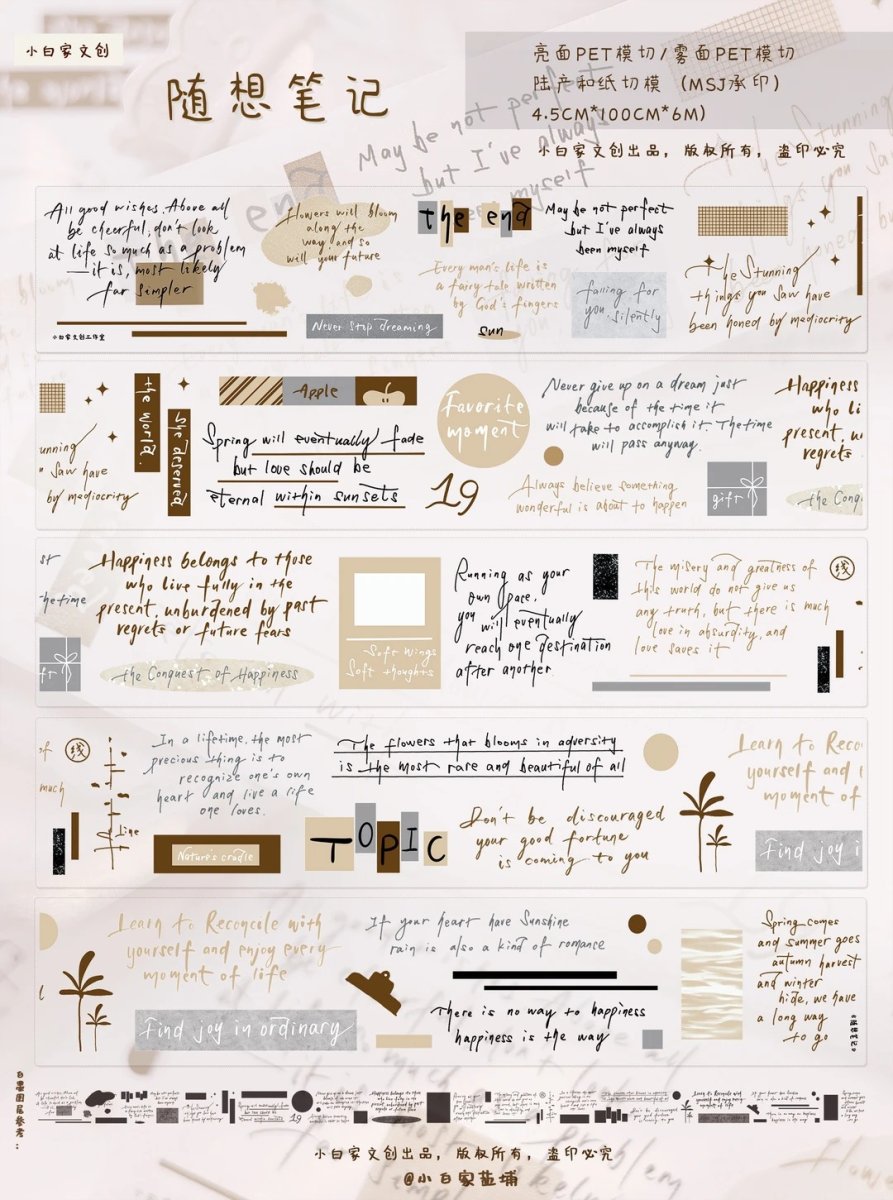 小白家文创
随想笔记
亮面PET模切/雾面PET模切
陆产和纸切模（MSJ承印）
4.5CM*100CM*6M)
小白家文创出品，版权所有，盗印必究
May be not perfect
but I've always
been myself
All good wishes. Above all
be cheerful, don't look
at life so much as a problem
—it is, most likely
far simpler
小白家文创工作室
Flowers will bloom
along the
way and so
will your future
Never stop dreaming
the end
Every man's life is
a fairy tale written
by God's fingers
sun
May be not perfect
but I've always
been myself
falling for
you, silently
the Stunning
things you saw have
been honed by mediocrity
unning
saw have
by mediocrity
the world.
She deserved
Apple
Spring will eventually fade
but love should be
eternal within sunsets
Favorite
moment
19
Never give up on a dream just
because of the time it
will take to accomplish it. The time
will pass anyway.
Always believe something
wonderful is about to happen
gift
Happiness
who li
present, u
regrets
the Conq
st
the time
ft
Happiness belongs to those
who live fully in the
present, unburdened by past
regrets or future fears
the Conquest of Happiness
Soft wings
Soft thoughts
Running as your
own pace,
you will eventually
reach one destination
after another
The misery and greatness of
this world do not give us
any truth, but there is much
love in absurdity, and
love saves it
线
of
much
线
line
In a lifetime, the most
precious thing is to
recognize one's own
heart and live a life
one loves.
Nature's cradle
The flowers that blooms in adversity
is the most rare and beautiful of all
TOPIC
Don't be discouraged
your good fortune
is coming to you
Learn to Reco
yourself and
moment of
Find joy i
Learn to Reconcile with
yourself and enjoy every
moment of life
Find joy in ordinary
If your heart have Sunshine
rain is also a kind of romance
There is no way to happiness
happiness is the way
Spring comes
and summer goes
autumn harvest
and winter
hide, we have
a long way
to go
《随想笔记》
白墨图层参考：
小白家文创出品，版权所有，盗印必究